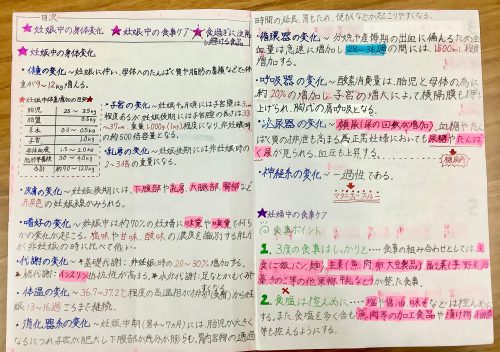 目次
★妊娠中の身体変化 ★妊娠中の食事ケア ★食事時に注意し
避ける食品
★妊娠中の身体変化
・体重の変化〜妊娠に伴い、母体へのたんぱく質や脂肪の蓄積などで、体
重が9〜12kg増える。
★妊娠中体重増加の目安
胎児 2.8〜3.5kg
胎盤 0.5kg
羊水 0.3〜0.5kg
子宮 1.0kg
1.5〜2.0kg
3.0〜4.0kg
合計 約9.0〜12.0kg
・子宮の変化〜妊娠千月頃には子宮長は3cm
程度あるが妊娠後期には子宮腔の長さは33
〜37cm、重量1,000g(1kg)程度になり、非妊娠時
の約500倍容量となる。
・乳房の変化〜妊娠後期には非妊娠時
の2〜3倍の重量になる。
・皮膚の変化〜妊娠後期には、下腹部や乳房、大腿部、臀部など
赤紫色の妊娠線がみられる。
・嗜好の変化〜妊娠中は約70%の妊婦に味覚や嗅覚で何ら
かの変化が起こる。塩味や甘味、酸味の濃度を識別する能力
が非妊娠の時に比べて低い。
・代謝の変化〜★基礎代謝:非妊娠時の20〜30%増加する。
★糖代謝:インスリン抵抗性が高まる。★水分代謝:足などむくみや
すくなる
・体温の変化〜36.7〜37.2℃程度の高温相が排卵(食事)から妊
娠13〜16週ごろまで継続。
・消化器系の変化〜妊娠中期(第4〜7ヵ月)には胎児が大きく
なるにつれ子宮が肥大して腹部が飛び出て膨らむ、胃内容物の通過
時間の延長、胃もたれ、便秘などが起こりやすくなる。
・循環器の変化〜分娩や産褥期の出血に備えるため循環
血量は急速に増加し28〜36週の間には、1,500mL程度
増加する。
・呼吸器の変化〜酸素消費量は、胎児と母体の為に
約20%の増加し、子宮の増大によって横隔膜も押し
上げられ、胸式の肩呼吸となる。
・泌尿器の変化〜頻尿(尿の回数が増加)、血糖やたん
ぱく質の排泄も高まる為正常妊婦においても尿糖やたんぱ
く尿が見られる。血圧も上昇する。
糖尿病
・神経系の変化〜一過性である。
マタニティーブルー
★妊娠中の食事ケア
◎食事ポイント
1. 3度の食事はしっかりと……食事の組み合わせとしては主
食(ご飯、パン、麺)、主菜(魚、肉、卵、大豆食品)、副菜(芋、野菜、海
藻、きのこ等の他果物、牛乳など)が整った食事。
2. 食塩は控えめに……塩や醤油、味噌などは控えめに
する。また、食塩を多く含む魚、肉等の加工食品や漬け物
等も控えるようにする。